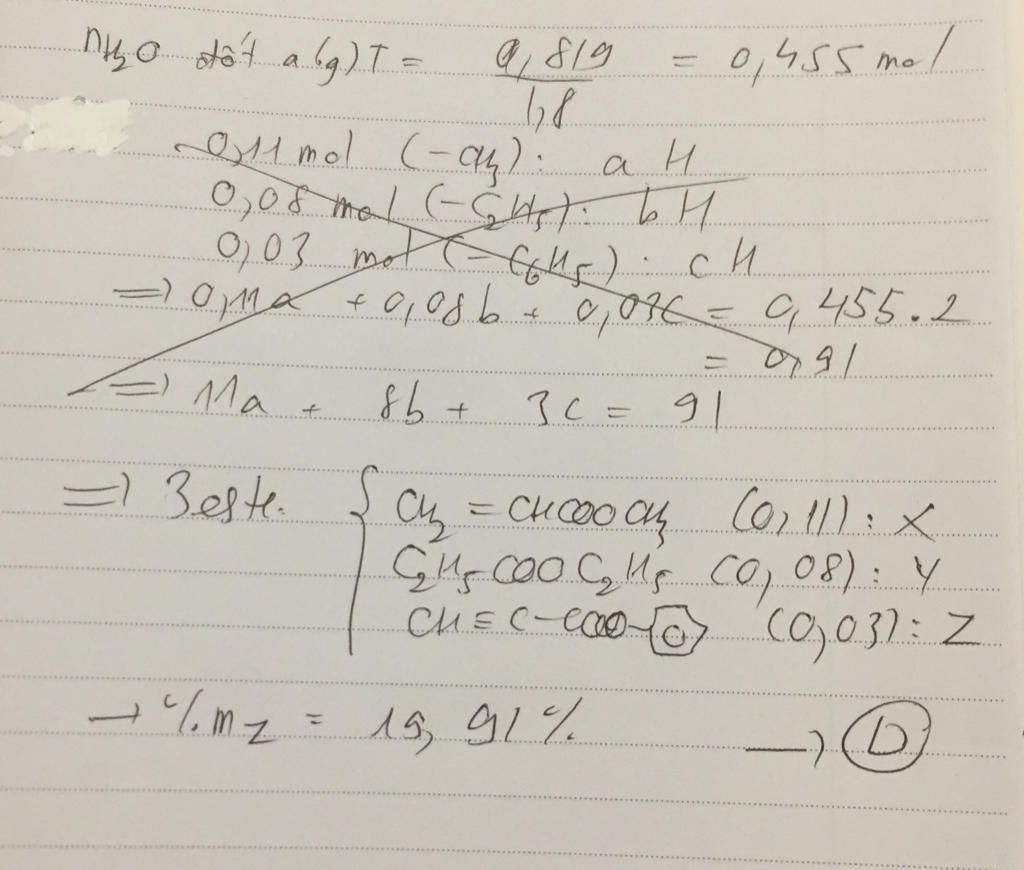 nH₂O đốt a(g)T = 0,819/1,8 = 0,455 mol
0,11 mol (-CH₃): a H
0,08 mol (-C₂H₅): b H
0,03 mol (-C₆H₅): c H
=> 0,11a + 0,08b + 0,03c = 0,455.2
= 0,91
=> 11a + 8b + 3c = 91
=> 3 este. { CH₂ = CHCOOCH₃ (0,11): X
C₂H₅COOC₂H₅ (0,08): Y
CH≡C-COO- (0,03): Z
→ %m_Z = 19,91%. → D